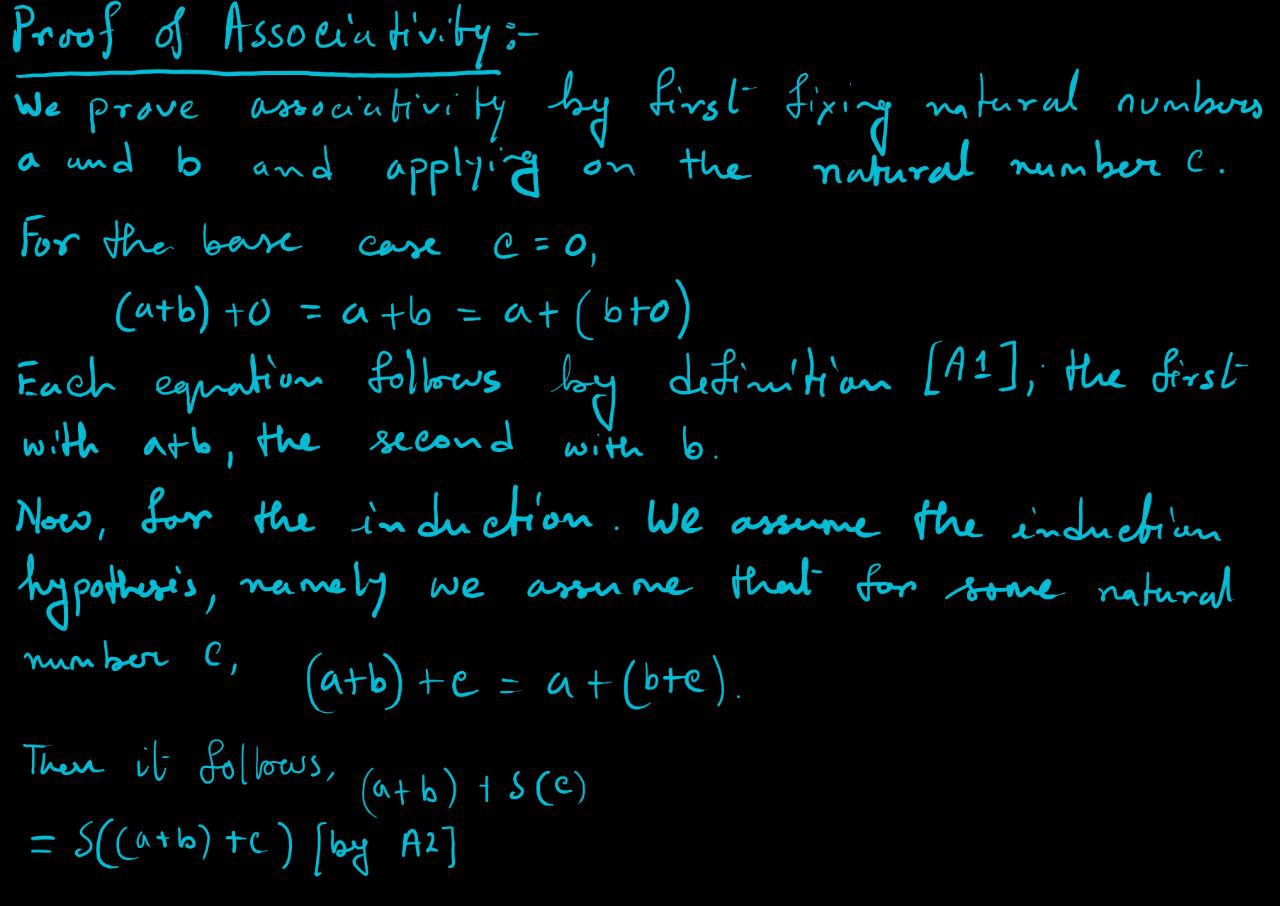 Proof of Associativity :-
We prove associativity by first fixing natural numbers
a and b and applying on the natural number c.
For the base case c = 0,
(a+b) + 0 = a + b = a + (b+0)
Each equation follows by definition [A1]; the first
with a+b, the second with b.
Now, for the induction. We assume the induction
hypothesis, namely we assume that for some natural
number c,
(a+b) + c = a + (b+c).
Then it follows,
(a+b) + S(c)
= S((a+b) + c) [by A2]